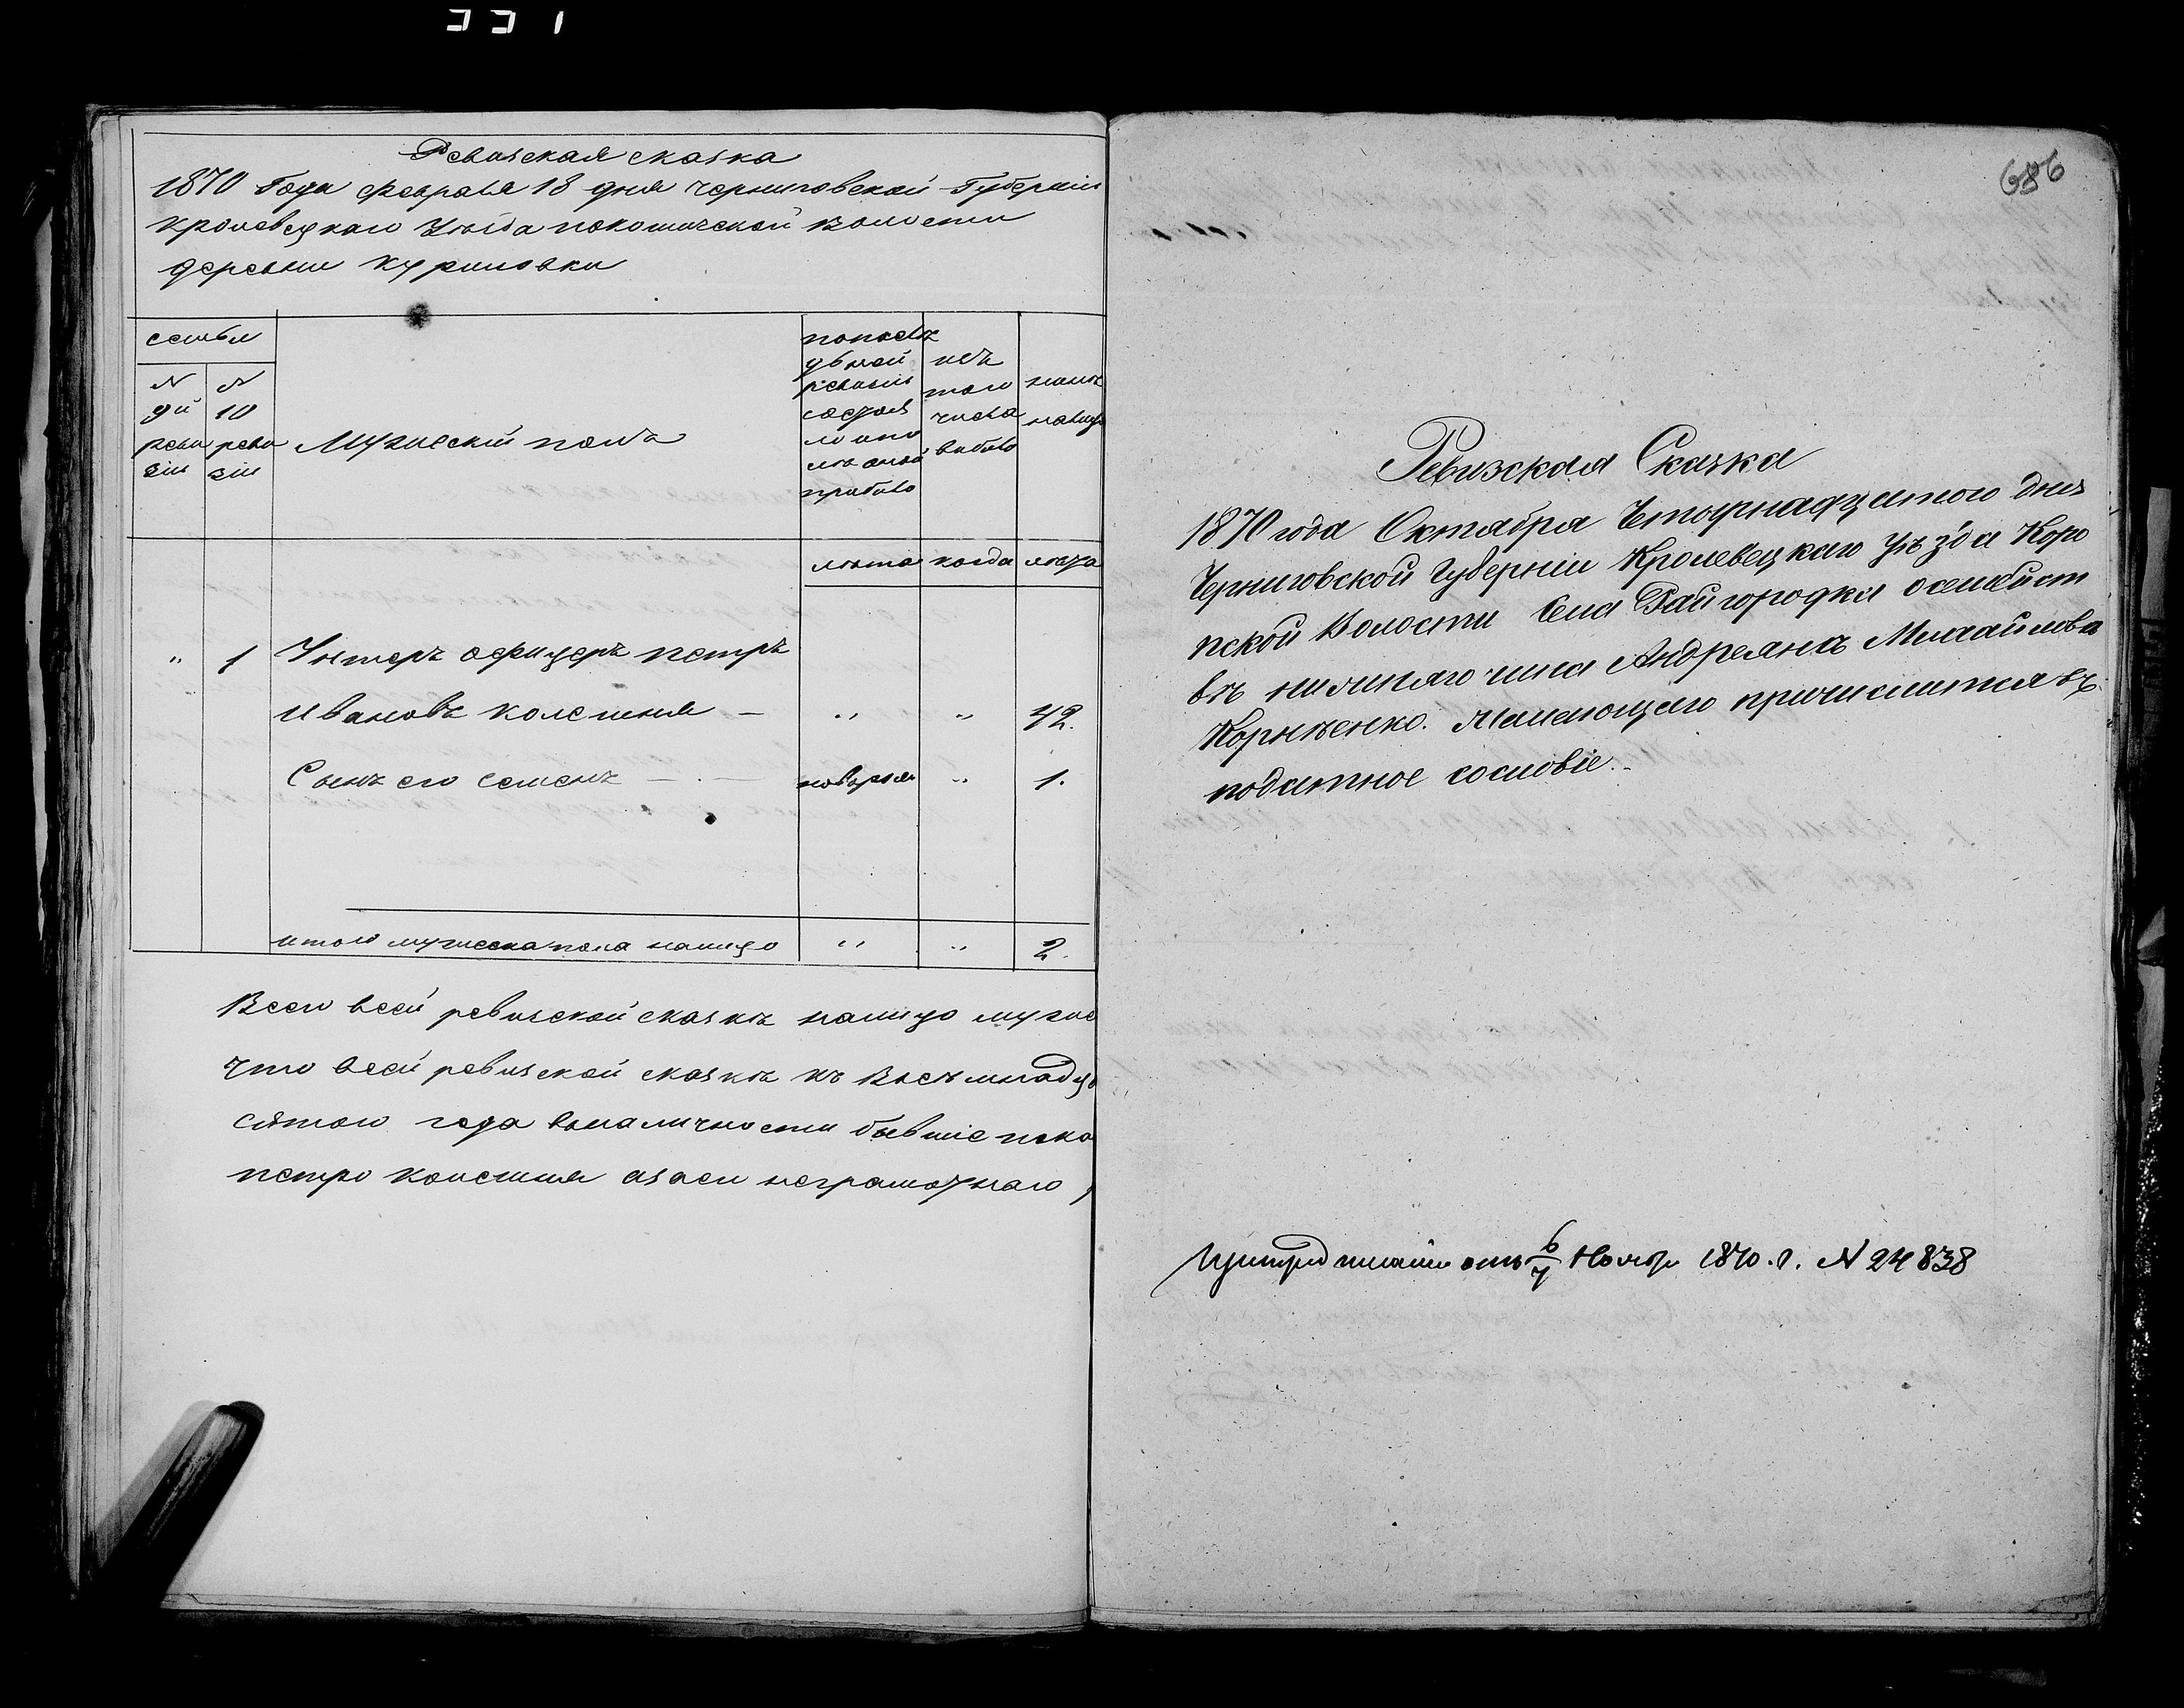 331
Ревизская сказка
1870 Года февраля 18 дня черниговской Губерніи
кролевецкаго Уѣзда покошичской волости
деревни куриловки
семьи
N 9й ревизіи
N 10 ревизіи
Мужескій полъ
попослѣдьней ревизіи состояло ипослѣ оной прибыло
изъ того числа выбыло
нынѣ налицо
лѣта
когда
лѣта
" 1 Унтеръ офицеръ петръ
ивановъ колешня — " " 42.
Сынъ его семенъ — новорож " 1.
итого мужеска пола налицо " " 2.
Всего всей ревизской сказкѣ налицо мужес
что всей ревизской сказкѣ къ Восемнадц
сятого года вналичности бывшіе пока
петро колешня азаси неграмотнаго,
686
Ревизская Сказка
1870 года Октября Четырнадцатого дня
Черниговской Губерніи Кролевецкаго уѣзда Коро
пской Волости Села Райгородка осемейст
вѣ нижняго чина Андреяна Михайлова
Корнѣенко. Желающаго причислится въ
податное сословіе.
отъ 6/7 Ноябр 1870.г. N 24838